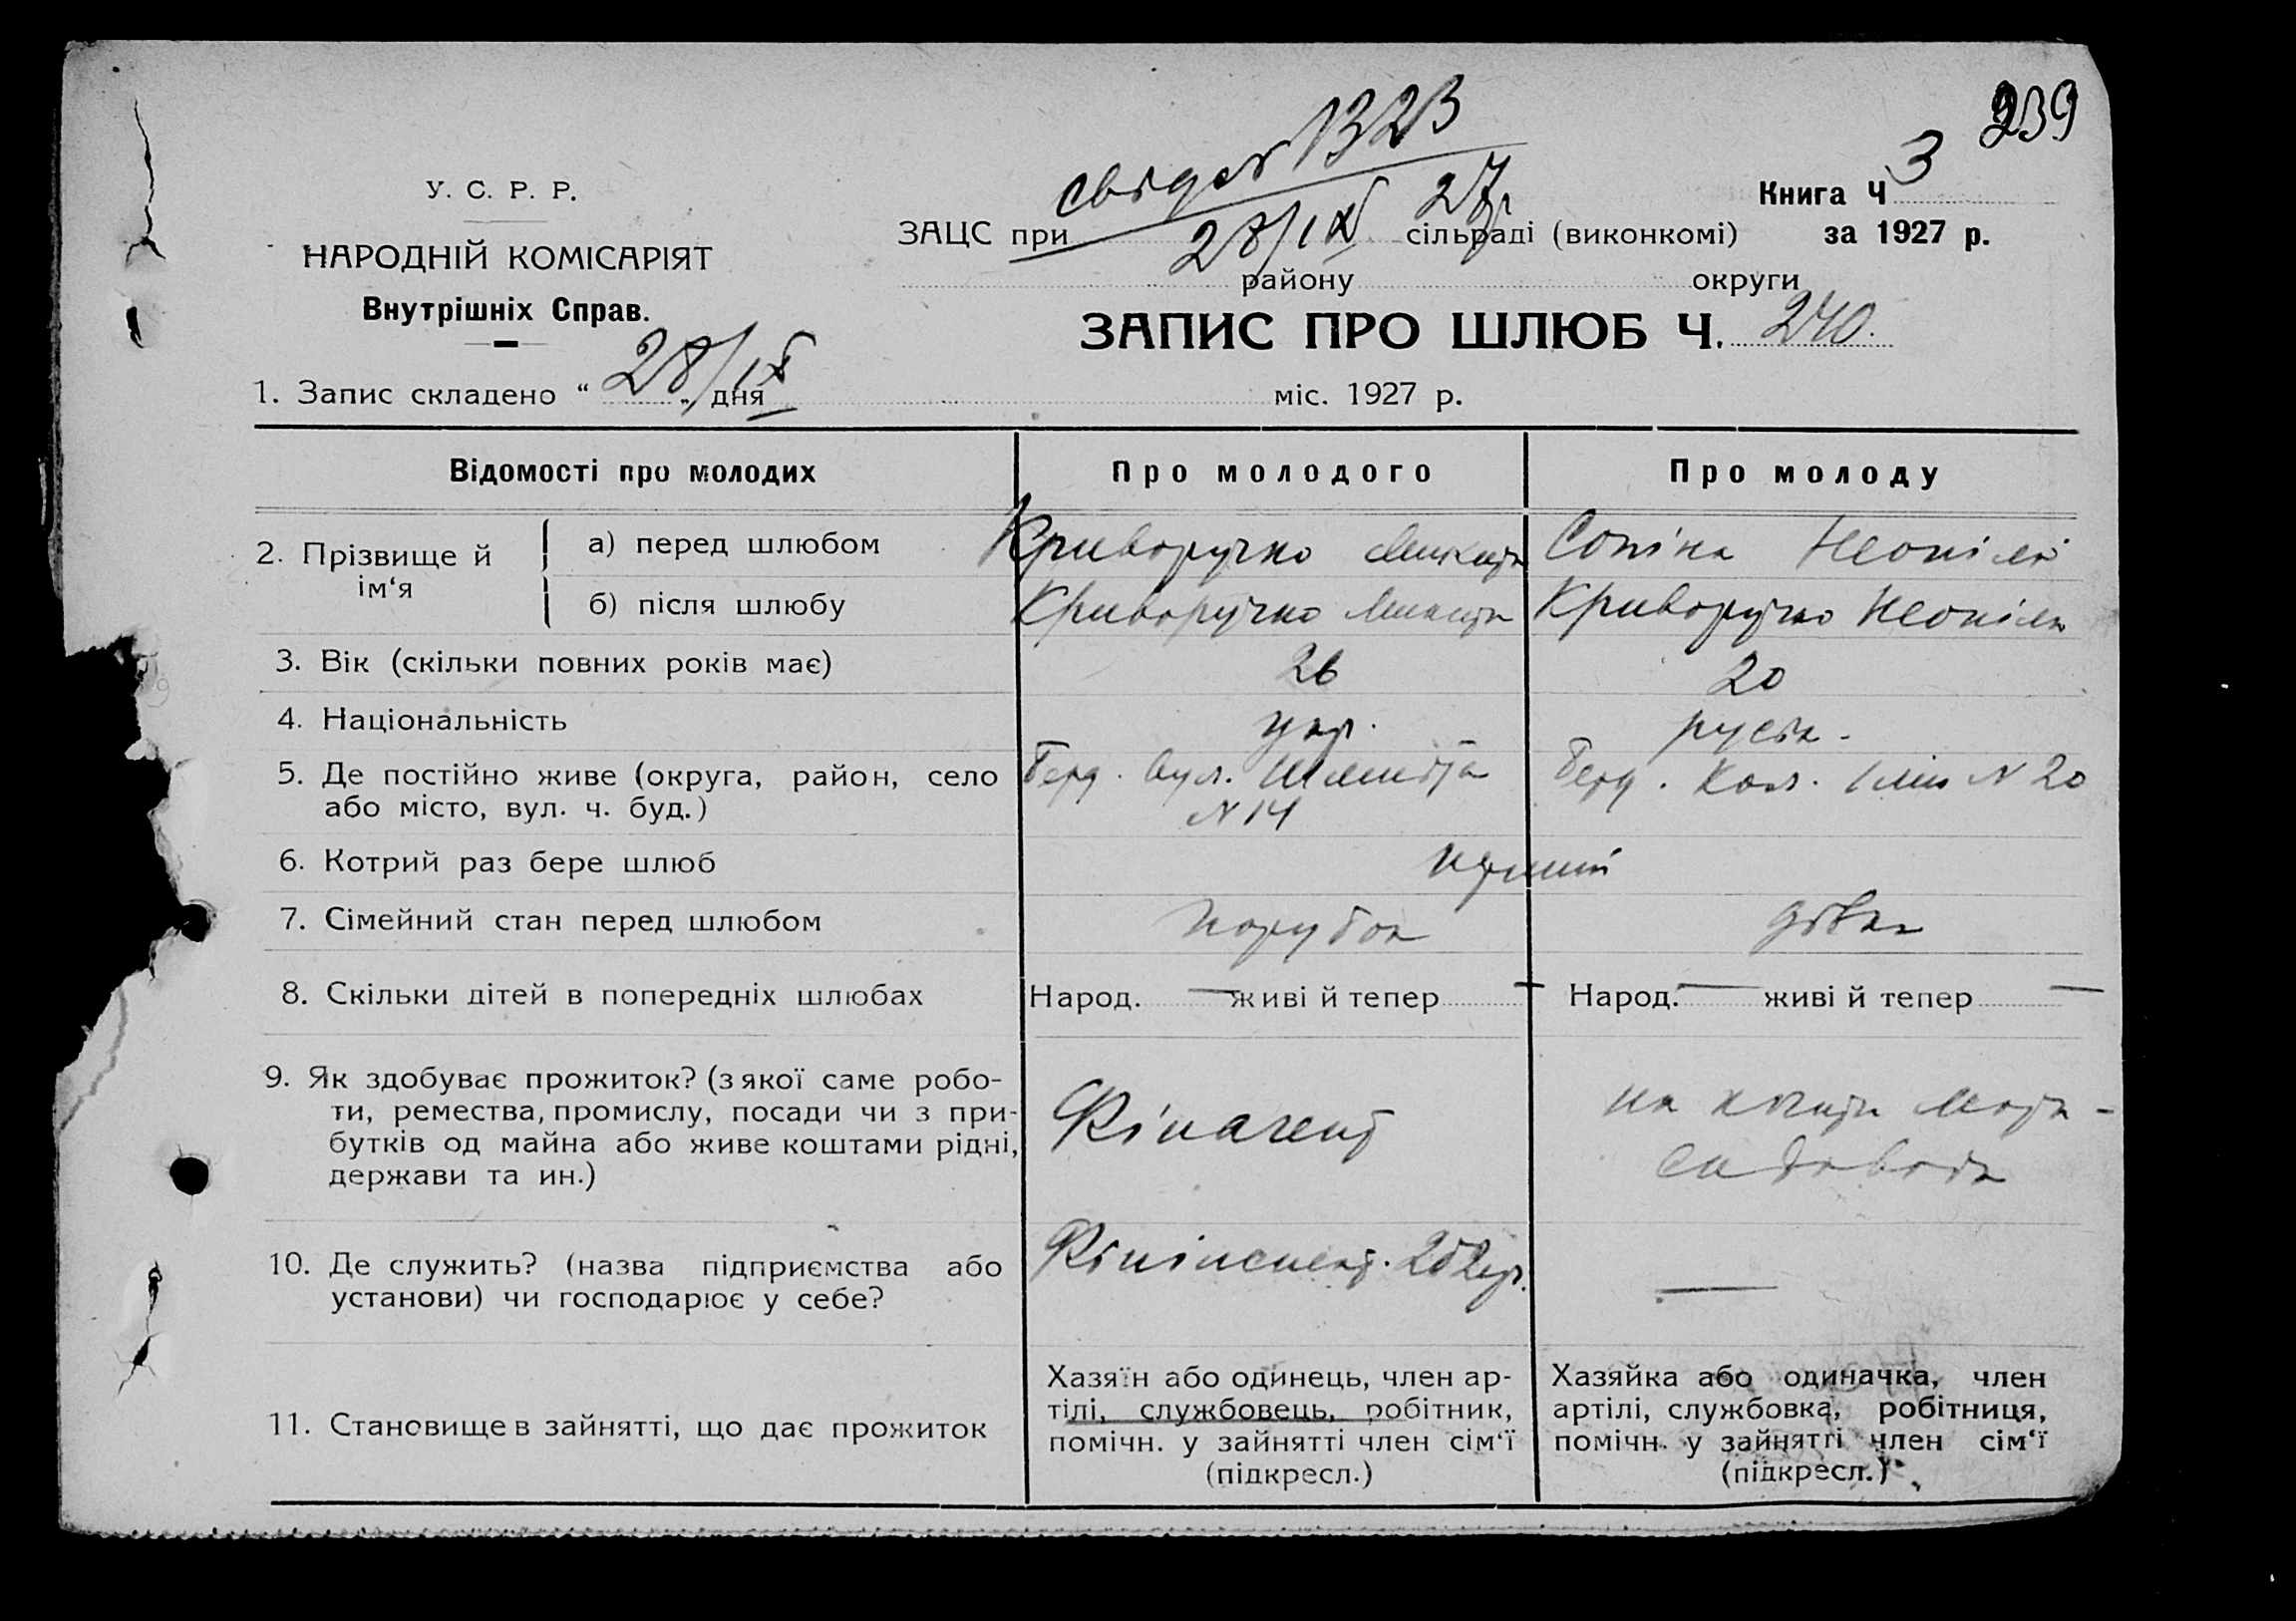 239
свідоц 1323
28/IX 27р
У. С. Р. Р.
НАРОДНІЙ КОМІСАРІЯТ
Внутрішніх Справ.
Книга Ч 3
за 1927 р.
ЗАЦС при сільраді (виконкомі)
району округи
ЗАПИС ПРО ШЛЮБ Ч. 240.
1. Запис складено “ 28/IX „ дня міс. 1927 р.
Відомості про молодих Про молодого Про молоду
2. Прізвище й ім‘я
а) перед шлюбом Криворучко Микита Сопіна
б) після шлюбу Криворучко Микита Криворучко
3. Вік (скільки повних років має) 26 20
4. Національність укр. руська
5. Де постійно живе (округа, район, село Берд. вул. Шмидта Берд. Кол. 1 лін N 20
або місто, вул. ч. буд.) N 14
6. Котрий раз бере шлюб
7. Сімейний стан перед шлюбом парубок дівка
8. Скільки дітей в попередніх шлюбах Народ. — живі й тепер — Народ. — живі й тепер —
9. Як здобуває прожиток? (з якої саме робо-
ти, ремества, промислу, посади чи з при-
бутків од майна або живе коштами рідні,
держави та ин.)
Фінагент
на кошти
садовода
10. Де служить? (назва підприємства або
установи) чи господарює у себе?
Фінінспект. —
11. Становище в зайнятті, що дає прожиток
Хазяїн або одинець, член ар-
тілі, службовець, робітник,
помічн. у зайнятті член сім‘ї
(підкресл.)
Хазяйка або одиначка, член
артілі, службовка, робітниця,
помічн. у зайнятті член сім‘ї
(підкресл.)